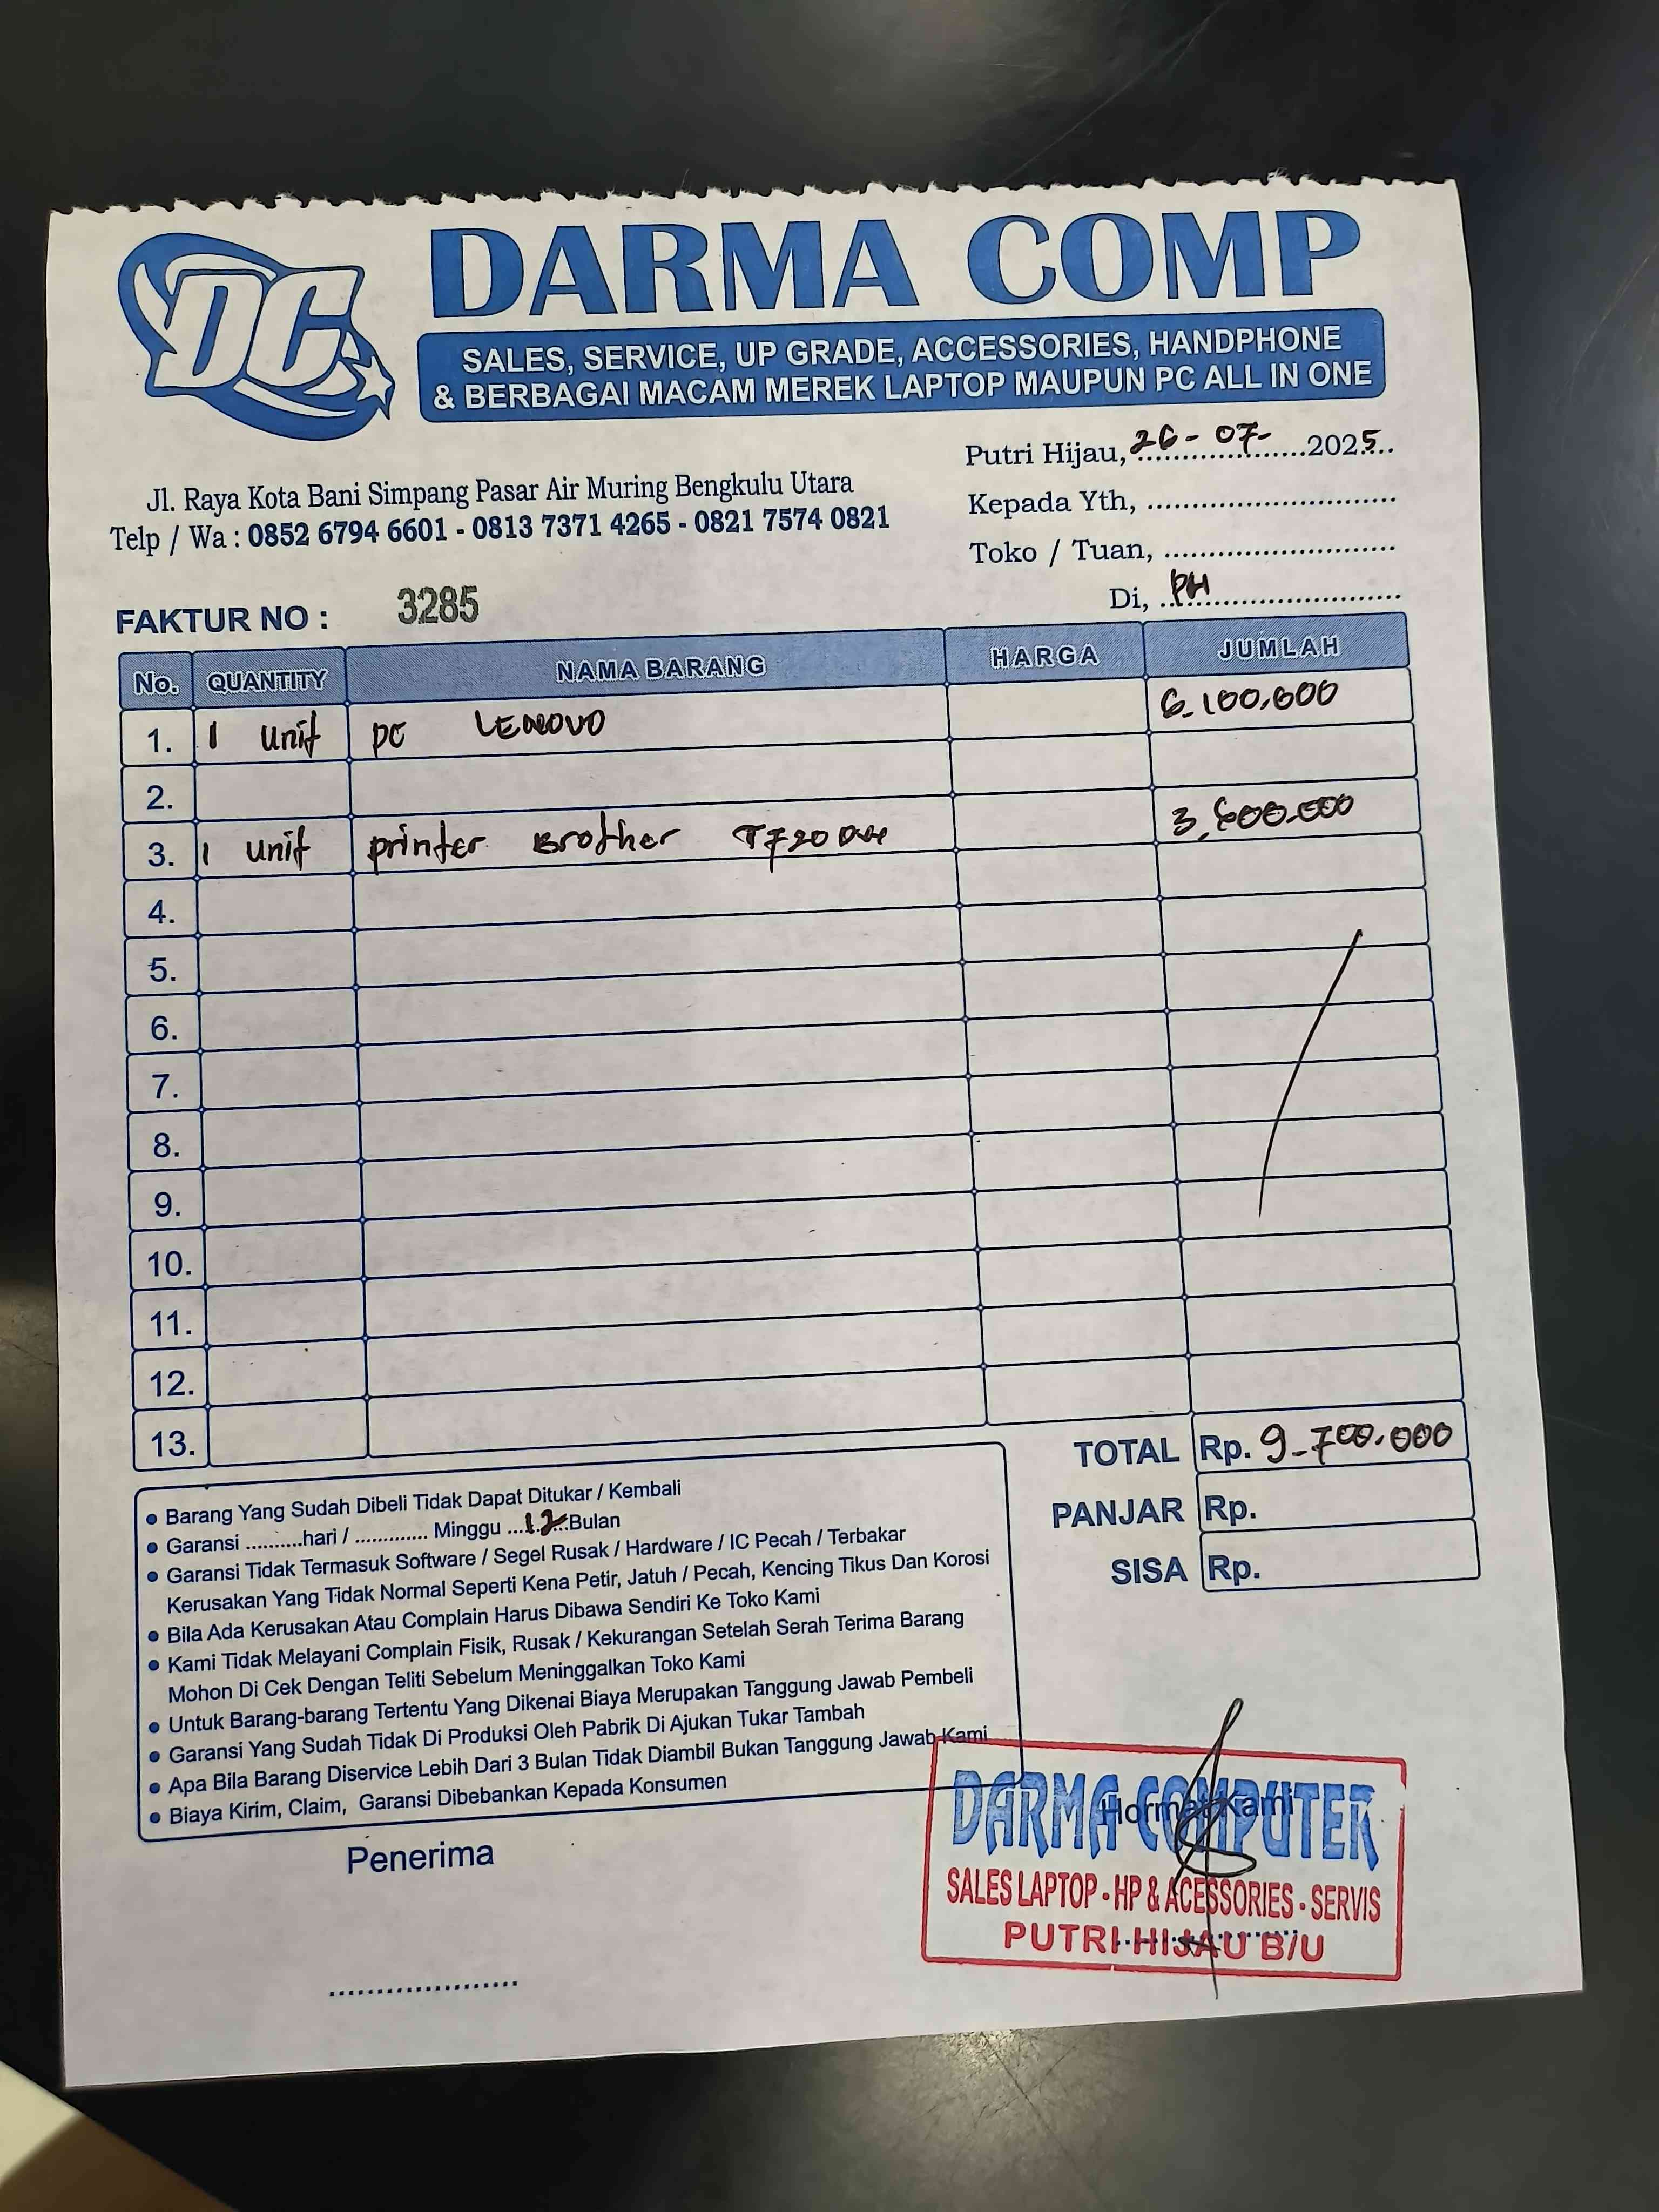 DC
DARMA COMP
SALES, SERVICE, UP GRADE, ACCESSORIES, HANDPHONE
& BERBAGAI MACAM MEREK LAPTOP MAUPUN PC ALL IN ONE
Jl. Raya Kota Bani Simpang Pasar Air Muring Bengkulu Utara
Telp / Wa : 0852 6794 6601 - 0813 7371 4265 - 0821 7574 0821
Putri Hijau, 26 - 07- 2025
Kepada Yth,
Toko / Tuan,
Di, PH
FAKTUR NO : 3285
No. QUANTITY NAMA BARANG HARGA JUMLAH
1. 1 unit PC LENOVO 6.100.000
2.
3. 1 unit printer Brother 3.600.000
4.
5.
6.
7.
8.
9.
10.
11.
12.
13.
TOTAL Rp. 9.700.000
PANJAR Rp.
SISA Rp.
• Barang Yang Sudah Dibeli Tidak Dapat Ditukar / Kembali
• Garansi ..........hari / ............ Minggu ...12...Bulan
• Garansi Tidak Termasuk Software / Segel Rusak / Hardware / IC Pecah / Terbakar
Kerusakan Yang Tidak Normal Seperti Kena Petir, Jatuh / Pecah, Kencing Tikus Dan Korosi
• Bila Ada Kerusakan Atau Complain Harus Dibawa Sendiri Ke Toko Kami
• Kami Tidak Melayani Complain Fisik, Rusak / Kekurangan Setelah Serah Terima Barang
Mohon Di Cek Dengan Teliti Sebelum Meninggalkan Toko Kami
• Untuk Barang-barang Tertentu Yang Dikenai Biaya Merupakan Tanggung Jawab Pembeli
• Garansi Yang Sudah Tidak Di Produksi Oleh Pabrik Di Ajukan Tukar Tambah
• Apa Bila Barang Diservice Lebih Dari 3 Bulan Tidak Diambil Bukan Tanggung Jawab Kami
• Biaya Kirim, Claim, Garansi Dibebankan Kepada Konsumen
Penerima
Hormat Kami
DARMA COMPUTER
SALES LAPTOP - HP & ACESSORIES - SERVIS
PUTRI HIJAU B/U